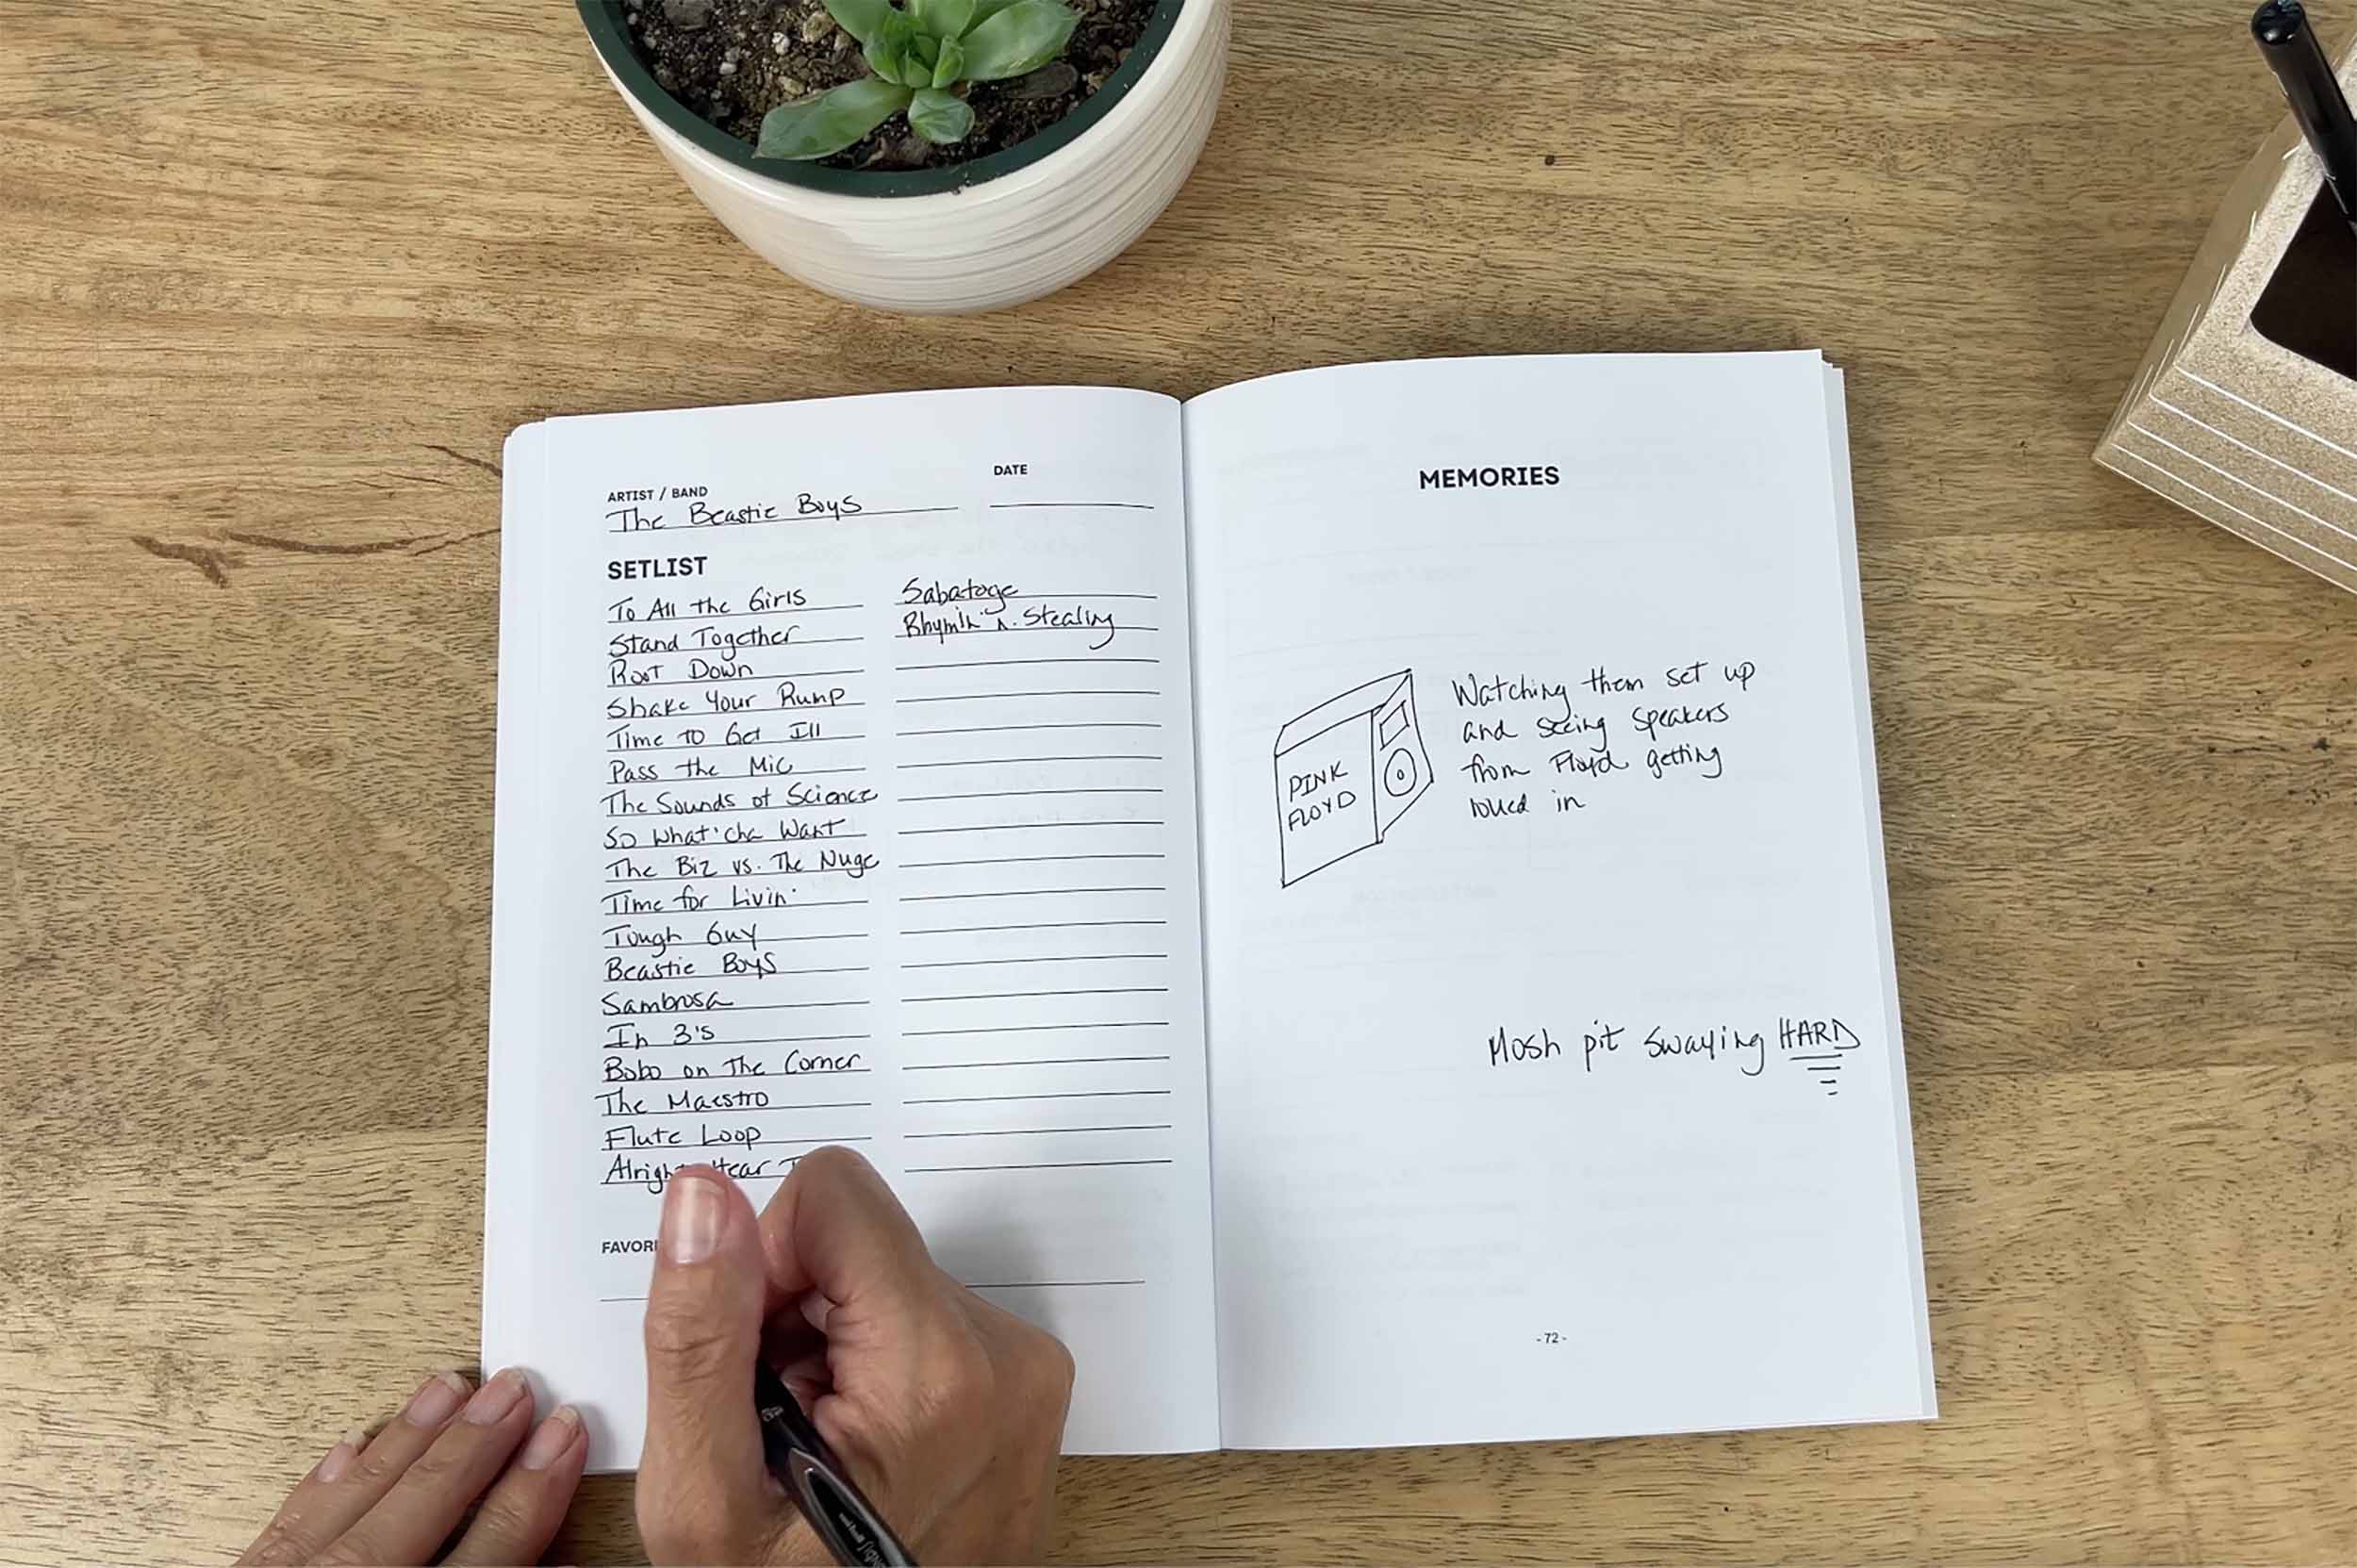 ARTIST / BAND
DATE
The Beastie Boys
SETLIST
To All the Girls
Stand Together
Root Down
Shake Your Rump
Time to Get Ill
Pass the Mic
The Sounds of Science
So What'cha Want
The Biz vs. The Nuge
Time for Livin'
Tough Guy
Beastie Boys
Sambrosa
In 3's
Bobo on The Corner
The Maestro
Flute Loop
Hear
Sabatoge
Rhymin' n. Stealing
MEMORIES
PINK
FLOYD
Watching them set up
and seeing speakers
from Floyd getting
in
Mosh pit swaying HARD
- 72 -